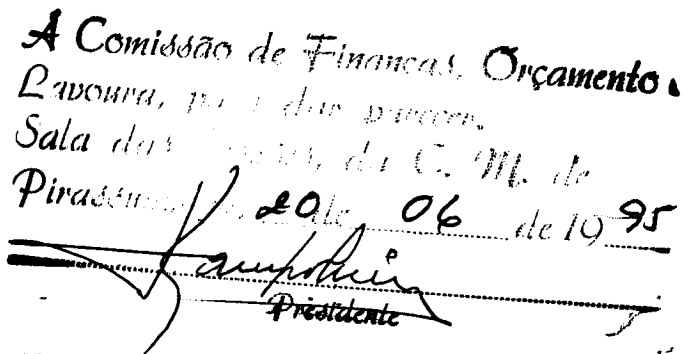 A Comissão de Finanças, Orçamento
Lavoura, para dar parecer.
Sala das Sessões, da C. M. de
Pirassununga, 20 de 06 de 19 95
Presidente